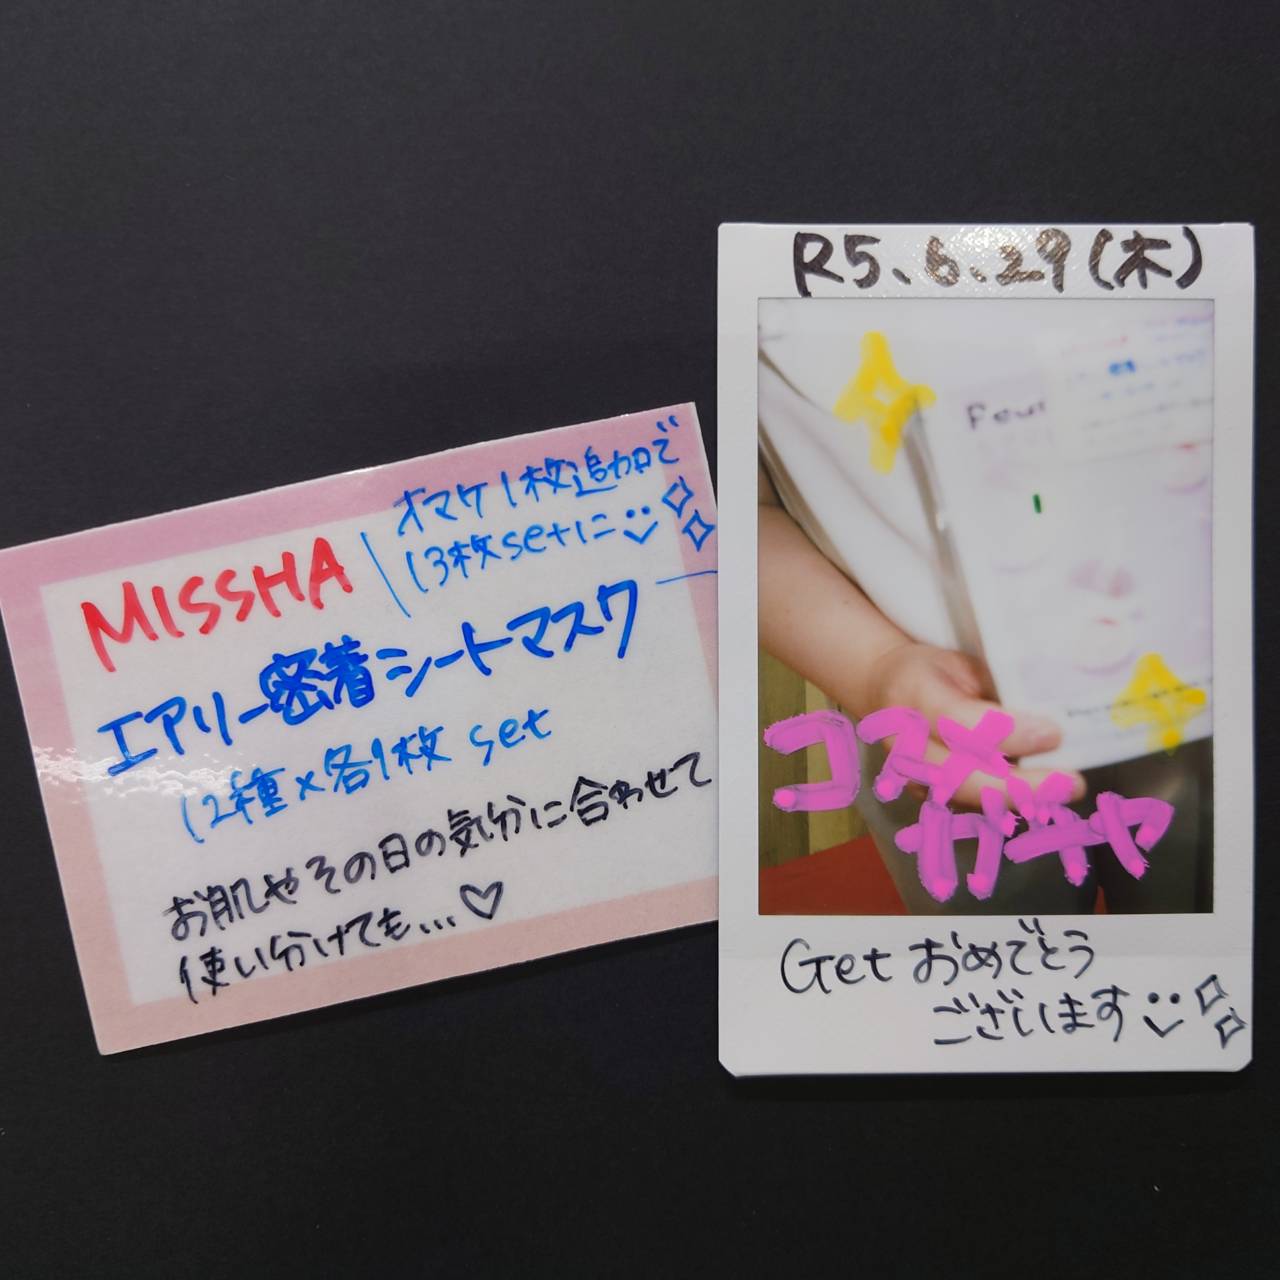 MISSHA
オマケ1枚追加で
(3枚setに
エアリー密着シートマスク
(2種×各1枚 set
お肌やその日の気分に合わせて
使い分けても...♡
R5.6.29(木)
Four
コスメ
ガチャ
Get おめでとう
ございます